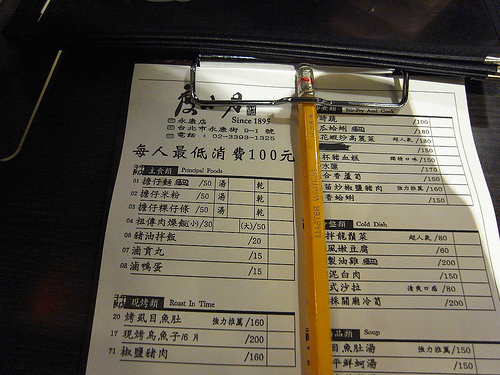 度小月
Since 1895
永康店
台北市永康街 9-1 號
電話：02-3393-1325
每人最低消費100元
主食類 Principal Foods
01 擔仔麵 /50 湯 乾
02 擔仔米粉 /50 湯 乾
03 擔仔粿仔條 /50 湯 乾
04 祖傳肉燥飯(小)/30 (大)/50
06 豬油拌飯 /20
07 滷貢丸 /15
08 滷鴨蛋 /15
現烤類 Roast In Time
20 烤虱目魚肚 強力推薦/160
17 現烤烏魚子/6片 /200
71 椒鹽豬肉 /160
Stir-Fry And Cook
時蔬 /100
瓜蛤蜊 /180
花蝦炒高麗菜 超人氣/180
/150
杯豬血糕 獨特口味/150
冰鎮 /170
合香蘆筍 /150
苗炒松鹽豬肉 強力推薦/160
香蛤蜊 /150
盤類 Cold Dish
拌龍鬚菜 超人氣/80
風嫩豆腐 /60
製油雞 /200
泥白肉 /150
式沙拉 清爽口感/80
採關廟冷筍 /200
品類 Soup
目魚肚湯 強力推薦/150
平鮮蚵湯 /150